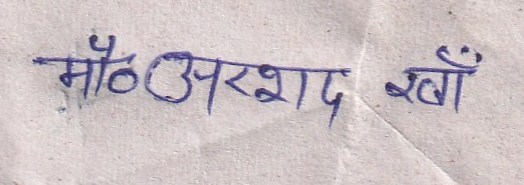 मौ० अरशद खाँ